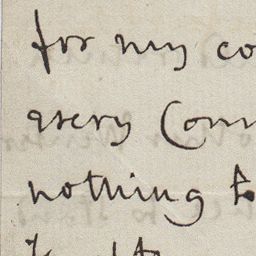 for my co
every Com
nothing to